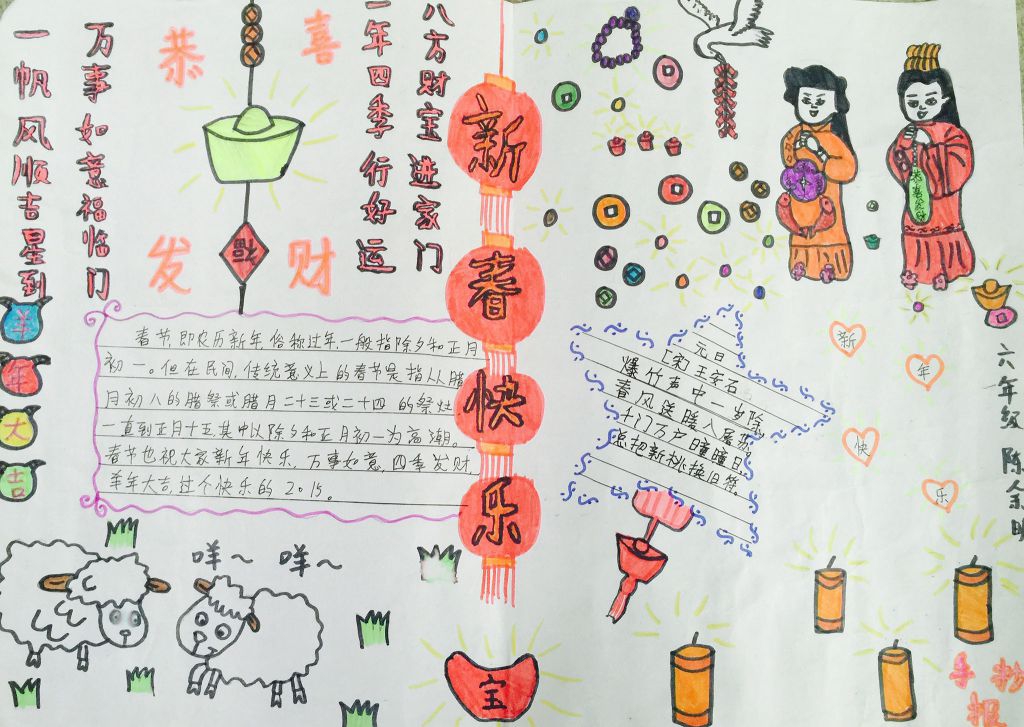 一帆风顺吉星到
万事如意福临门
恭喜
发财
福
一年四季行好运
八方财宝进家门
新春快乐
羊年大吉
春节,即农历新年,俗称过年一般指除夕和正月
初一。但在民间,传统意义上的春节是指从腊
月初八的腊祭或腊月二十三或二十四的祭灶
一直到正月十五,其中以除夕和正月初一为高潮。
春节也祝大家新年快乐,万事如意,四季发财
羊年大吉,过个快乐的2015。
咩~ 咩~
宝
恭喜发财
元日
[宋]王安石
爆竹声中一岁除,
春风送暖入屠苏。
千门万户曈曈日,
总把新桃换旧符。
新
年
快
乐
六年级 陈余
手抄报